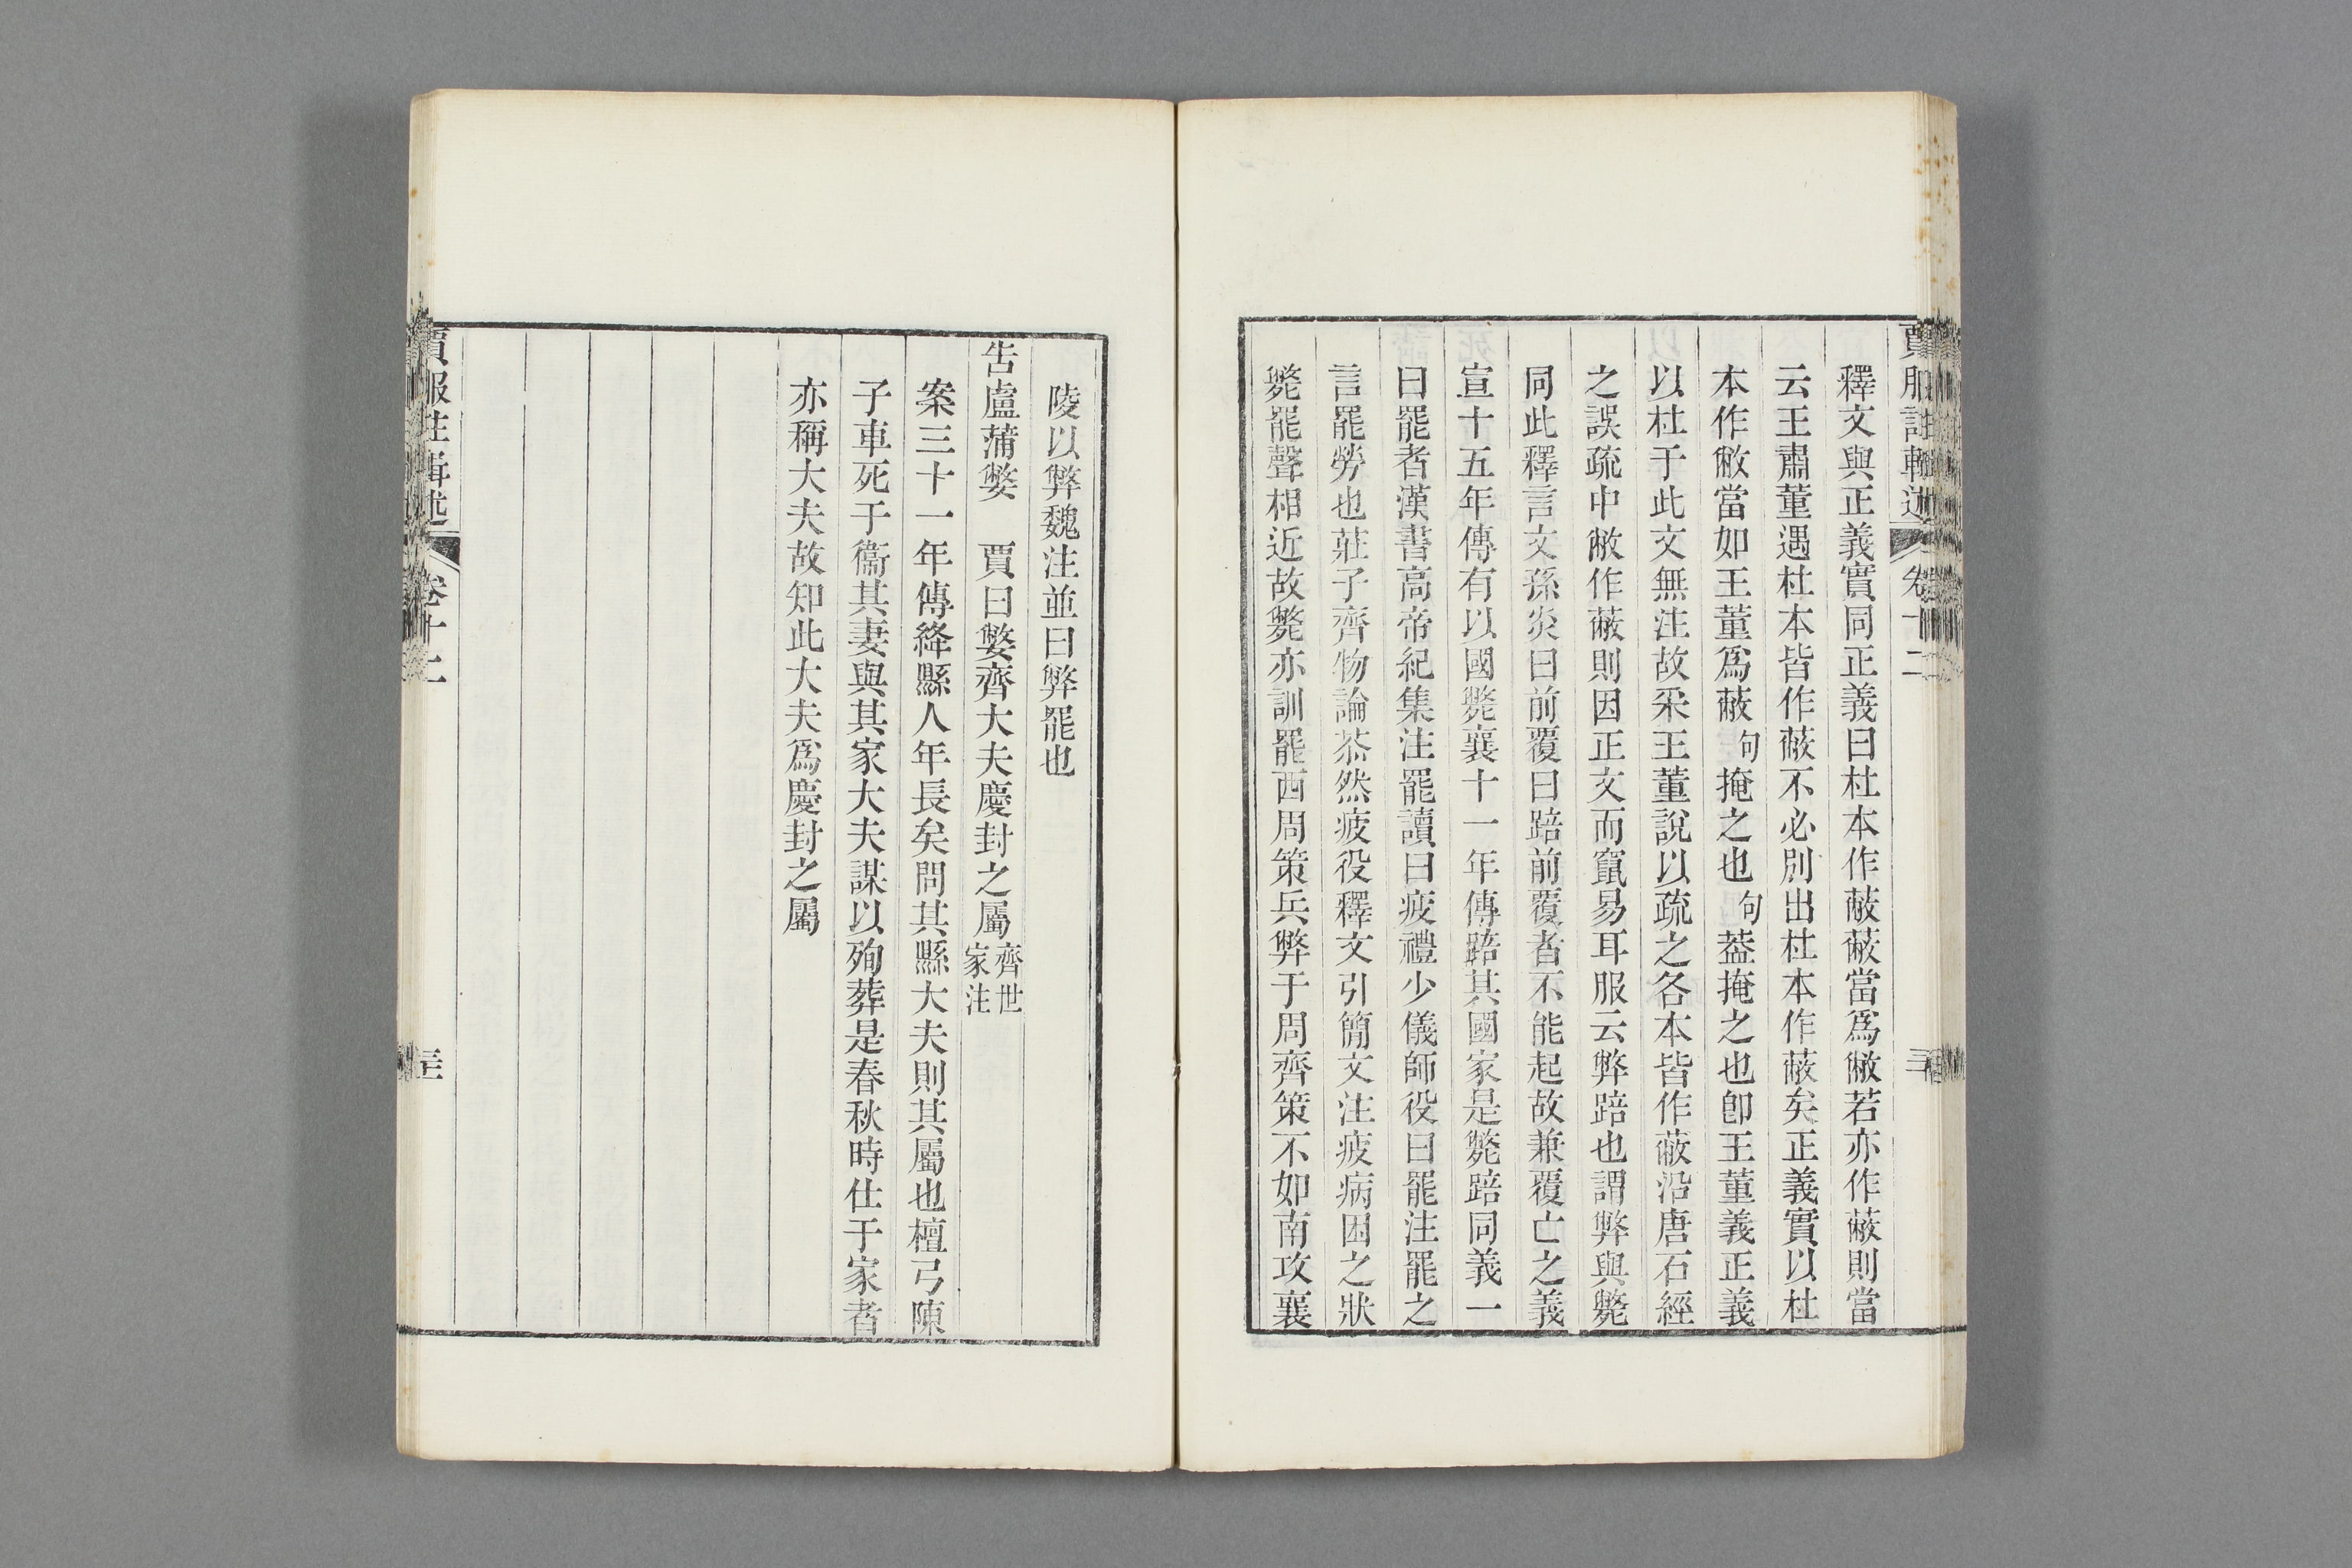 賈服註輯述 卷十二
釋文與正義實同正義曰杜本作蔽蔽當爲敝若亦作蔽則當
云王肅董遇杜本皆作蔽不必別出杜本作蔽矣正義實以杜
本作敝當如王董爲蔽句掩之也句葢掩之也卽王董義正義
以杜于此文無注故采王董說以疏之各本皆作蔽沿唐石經
之誤疏中敝作蔽則因正文而竄易耳服云弊踣也謂弊與斃
同此釋言文孫炎曰前覆曰踣前覆者不能起故兼覆亡之義
宣十五年傳有以國斃襄十一年傳踣其國家是斃踣同義一
曰罷者漢書高帝紀集注罷讀曰疲禮少儀師役曰罷注罷之
言罷勞也莊子齊物論苶然疲役釋文引簡文注疲病困之狀
斃罷聲相近故斃亦訓罷西周策兵弊于周齊策不如南攻襄
陵以弊魏注並曰弊罷也
吿盧蒲嫳 賈曰嫳齊大夫慶封之屬齊世家注
案三十一年傳絳縣人年長矣問其縣大夫則其屬也檀弓陳
子車死于衞其妻與其家大夫謀以殉葬是春秋時仕于家者
亦稱大夫故知此大夫爲慶封之屬
賈服註輯述 卷十二